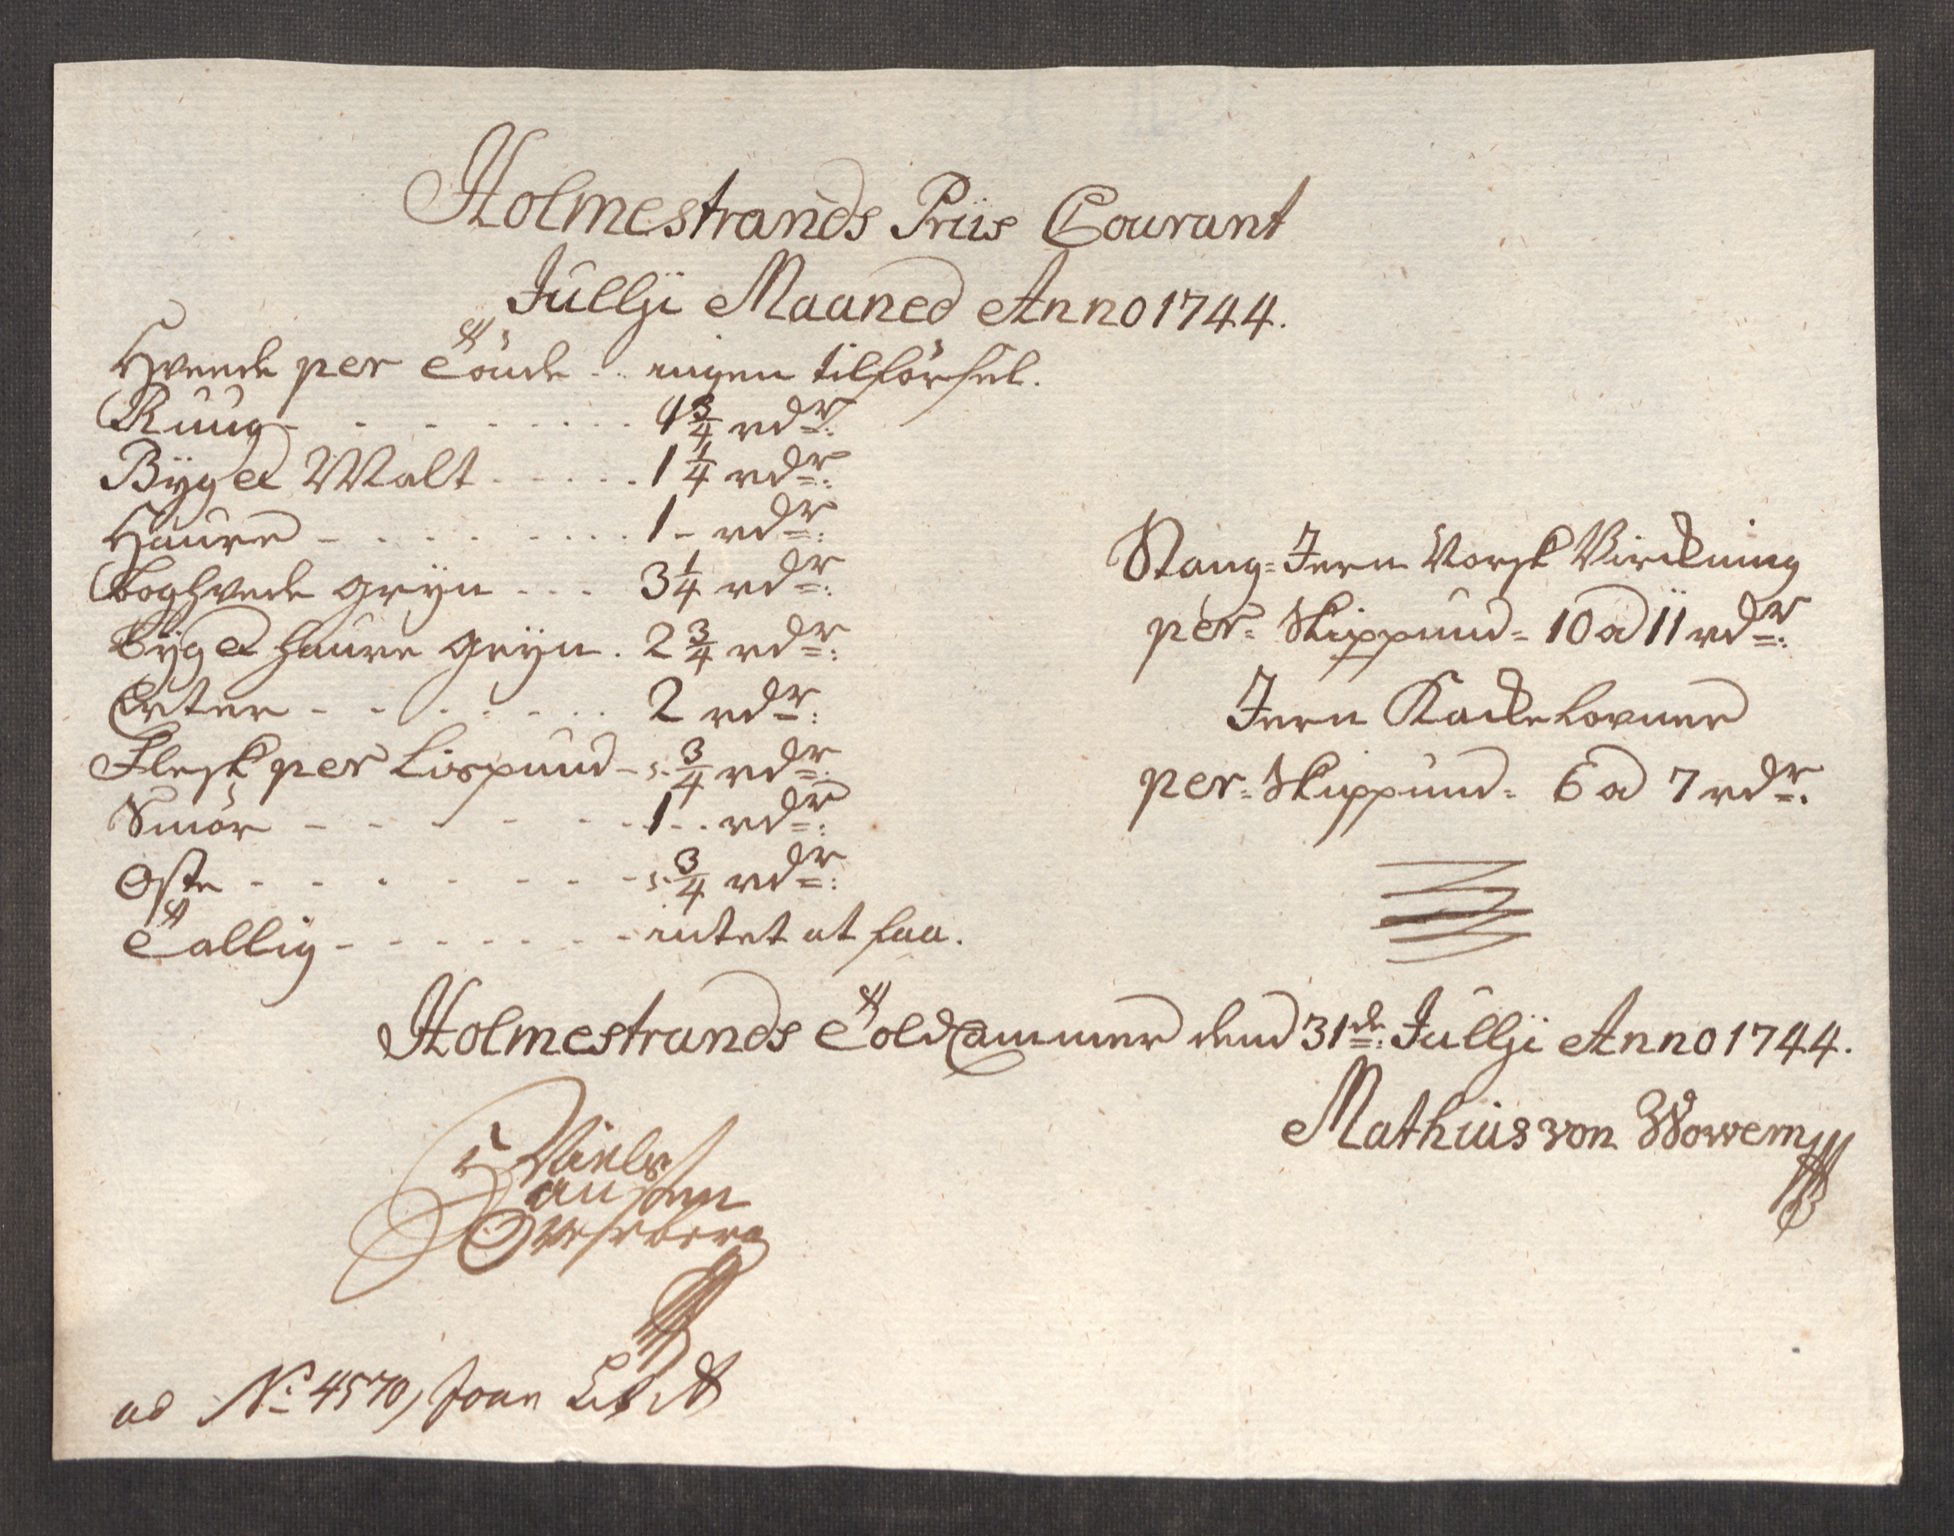 Holmestrands Priis Courant
Jullji Maaned Anno 1744.
Hveede per Tönde .. ingen tilförsel.
Ruug - - - - - - - - 1 3/4 rdr:
Byg & Malt - - - - - 1 1/4 rdr:
Haure - - - - - - - - 1 - rdr:
Boghvede gryn - - - 3 1/4 rdr:
Byg & haure gryn . 2 3/4 rdr:
Erter - - - - - - - 2 rdr:
Flesk per Lispund - 3/4 rdr:
Smör - - - - - - - 1 - - rdr:
Oste - - - - - - - 3/4 rdr:
Tallig - - - - - - - intet at faa.
Stang=Jern Norsk Virckning
per= Skippund= 10 a 11 rdr:
Jern Kackelovner
per= Skippund= 6 a 7 rdr.
Holmestrands Told Cammer dend 31de: Jullji Anno 1744.
Mathias von Wowern
Niels
Hansen
ad No. 4570,